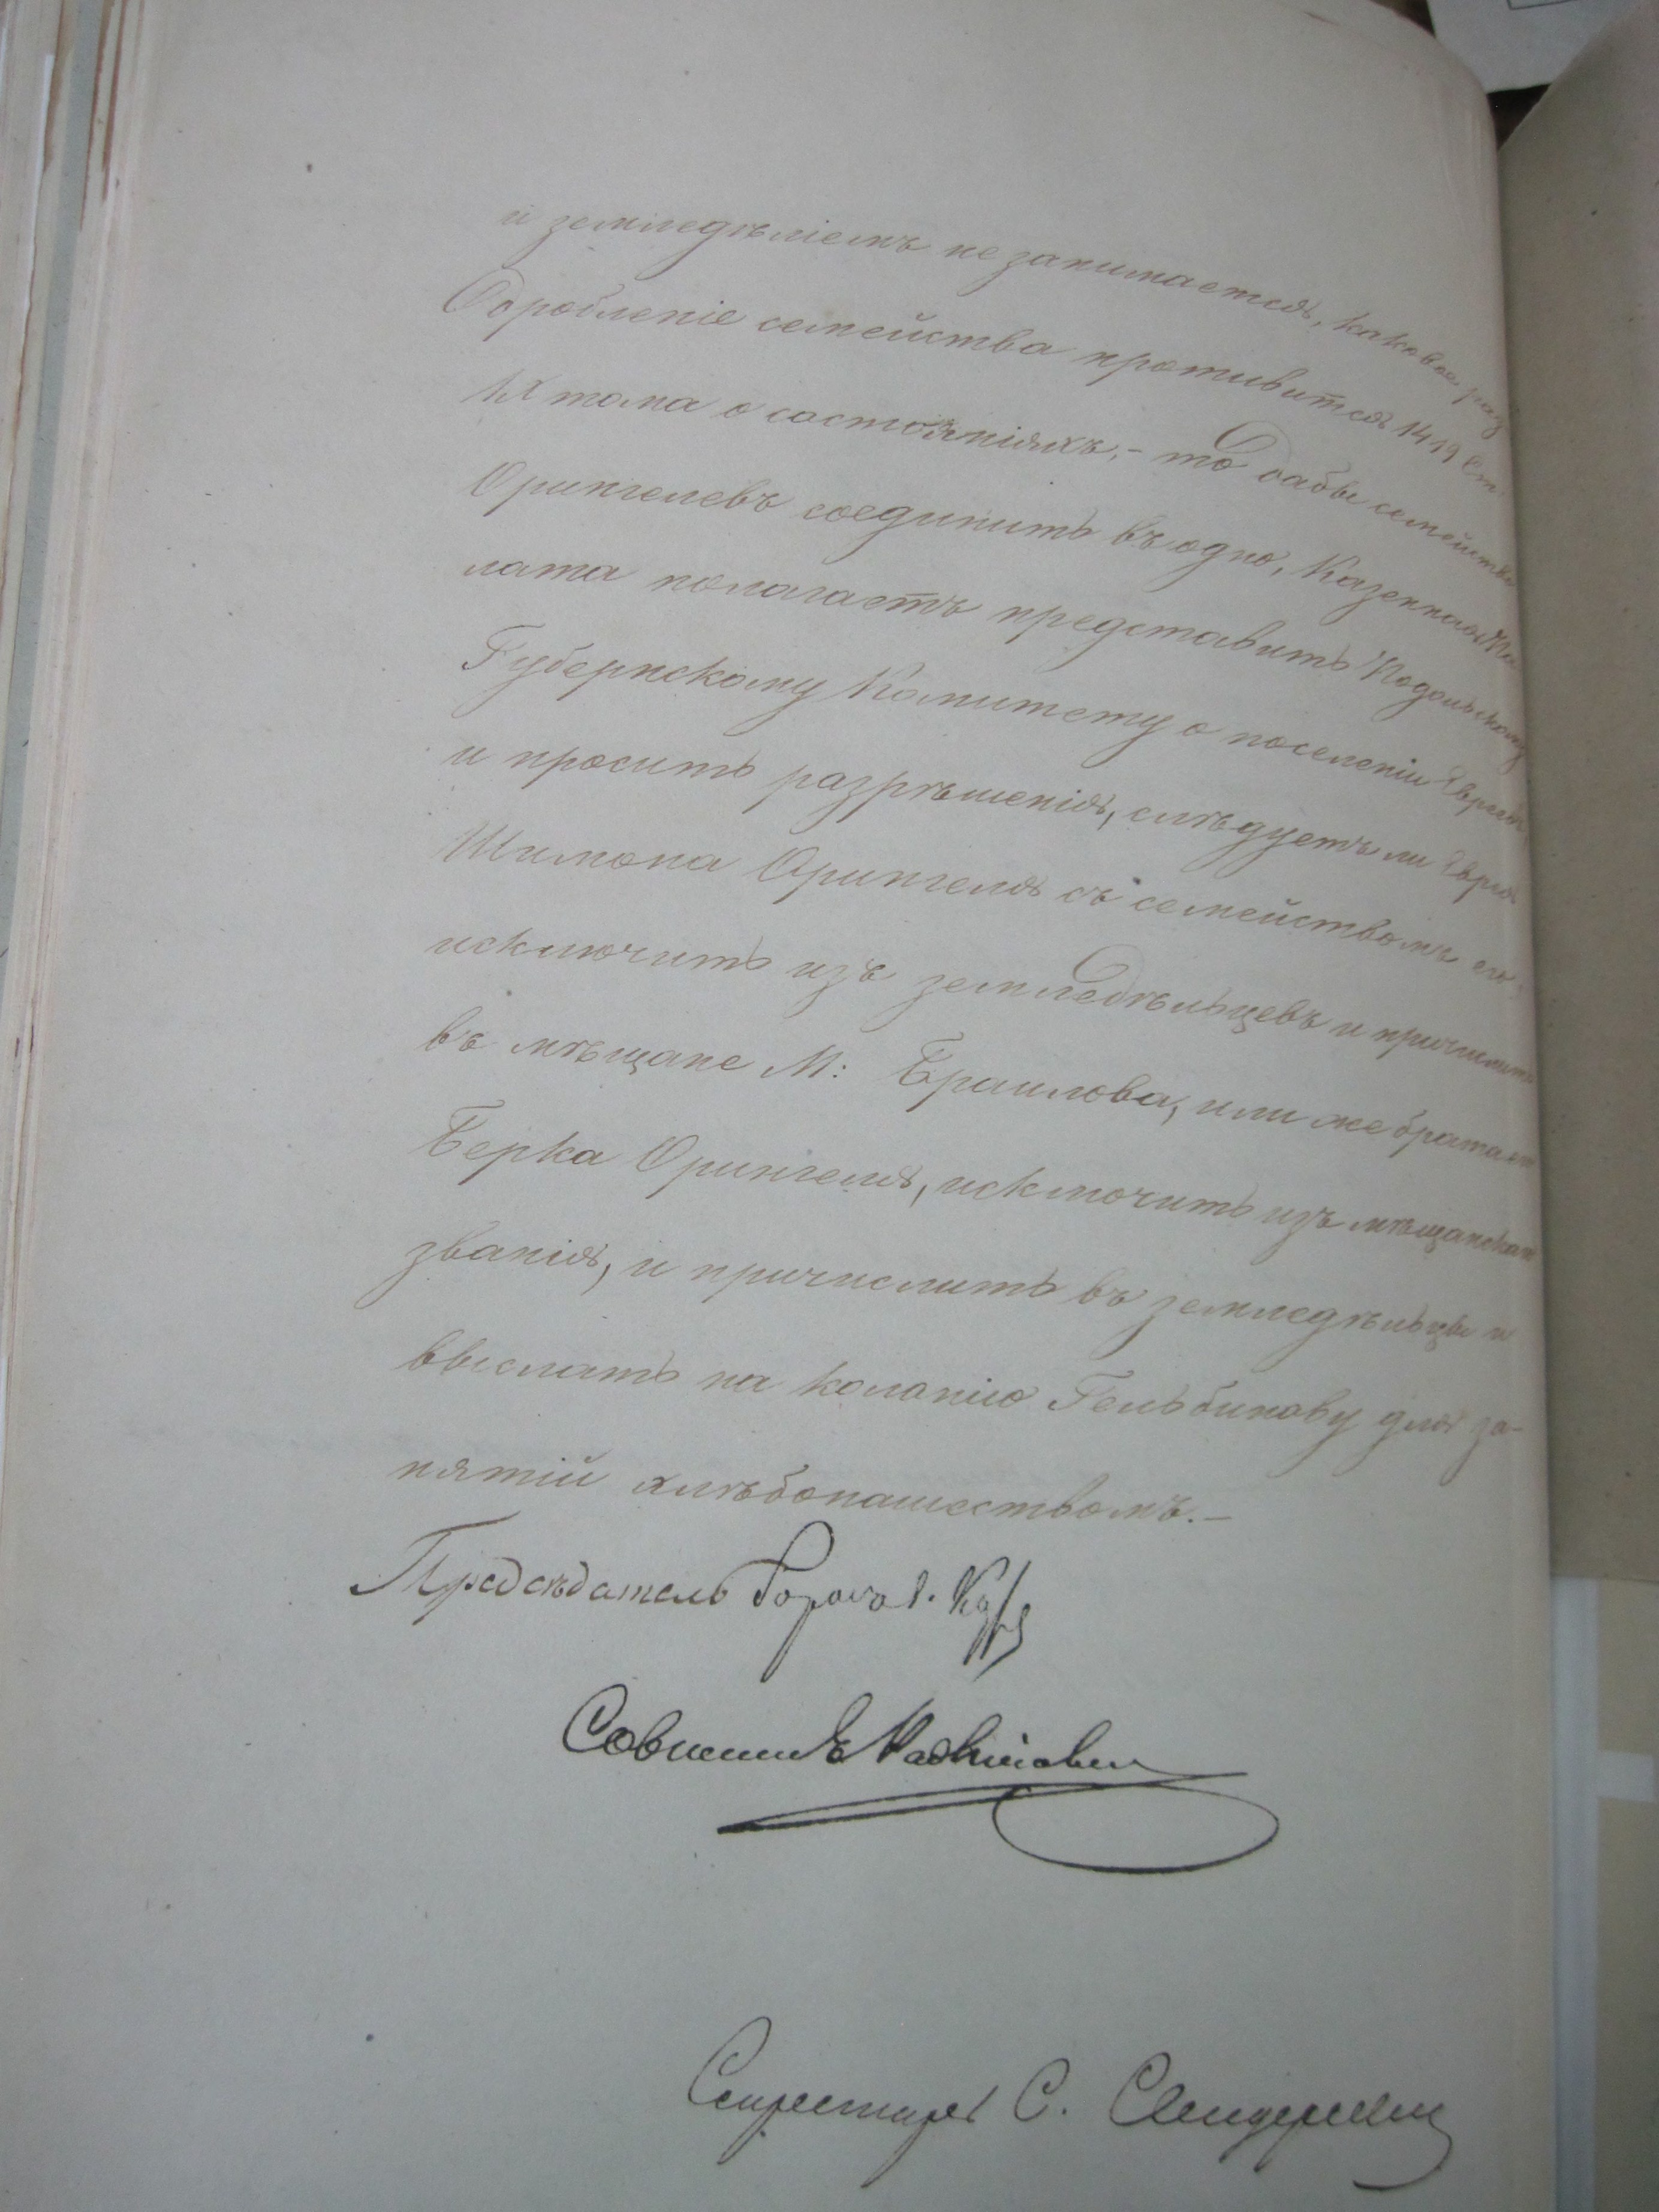 и земледѣліемъ не занимается, каковое раз
дробленіе семейства противится 1419 Ст.
IX тома о состояніяхъ,- то дабы семейство
Орингелевъ соединить въ одно, Казенная Па
лата полагаетъ представить Подольскому
Губернскому Комитету о поселеніи Евреевъ
и просить разрѣшенія, слѣдуетъ ли Еврея
Шимона Орингеля съ семействомъ его,
исключить изъ земледѣльцевъ и причислить
въ мѣщане М: Браилова, или же брата его
Берка Орингеля, исключить изъ мѣщанскаго
званія, и причислить въ земледѣльцы и
выслать на колонію Гельбинову для за-
нятій хлѣбопашествомъ.-
Предсѣдатель
Совѣтникъ
Секретарь С.